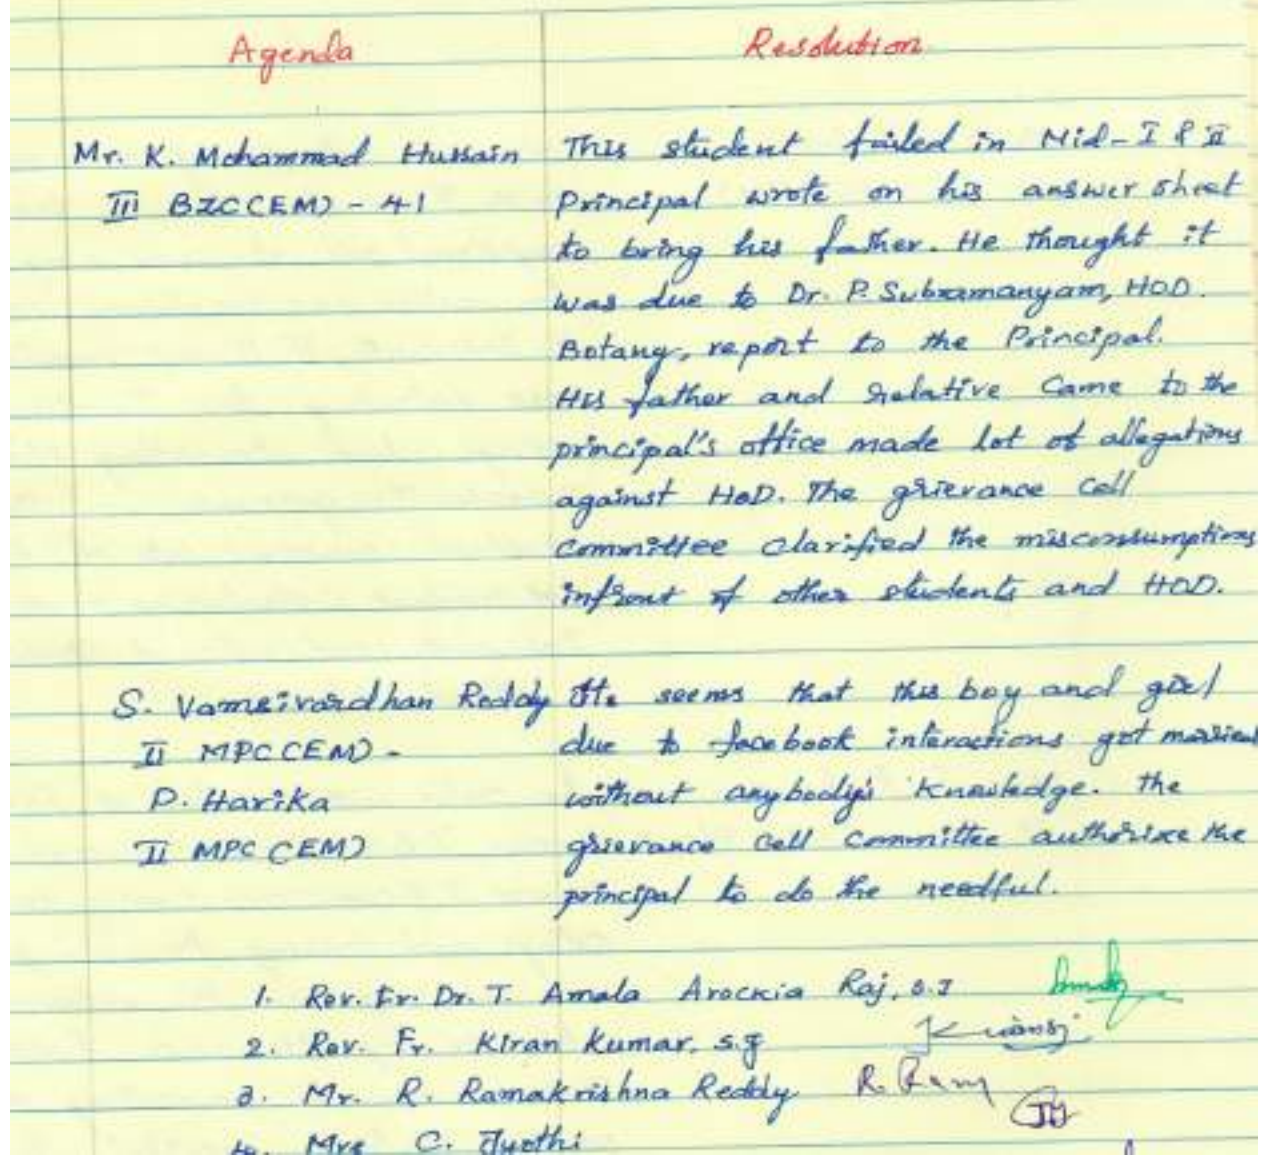 Agenda Resolution
Mr. K. Mohammad Hussain This student failed in Mid-I & II
III BZC(EM) - 41 Principal wrote on his answer sheet
to bring his father. He thought it
was due to Dr. P. Subramanyam, HOD.
Botany, report to the Principal.
His father and relative came to the
principal's office made lot of allegations
against HOD. The grievance cell
committee clarified the misconsumptions
infront of other students and HOD.
S. Vamsivardhan Reddy It seems that this boy and girl
II MPC(EM) - due to facebook interactions got married
P. Harika without anybody's knowledge. The
II MPC(EM) grievance cell committee authorize the
principal to do the needful.
1. Rev. Fr. Dr. T. Amala Arockia Raj, S.J
2. Rev. Fr. Kiran Kumar, S.J
3. Mr. R. Ramakrishna Reddy R. Ram
4. Mrs C. Jyothi